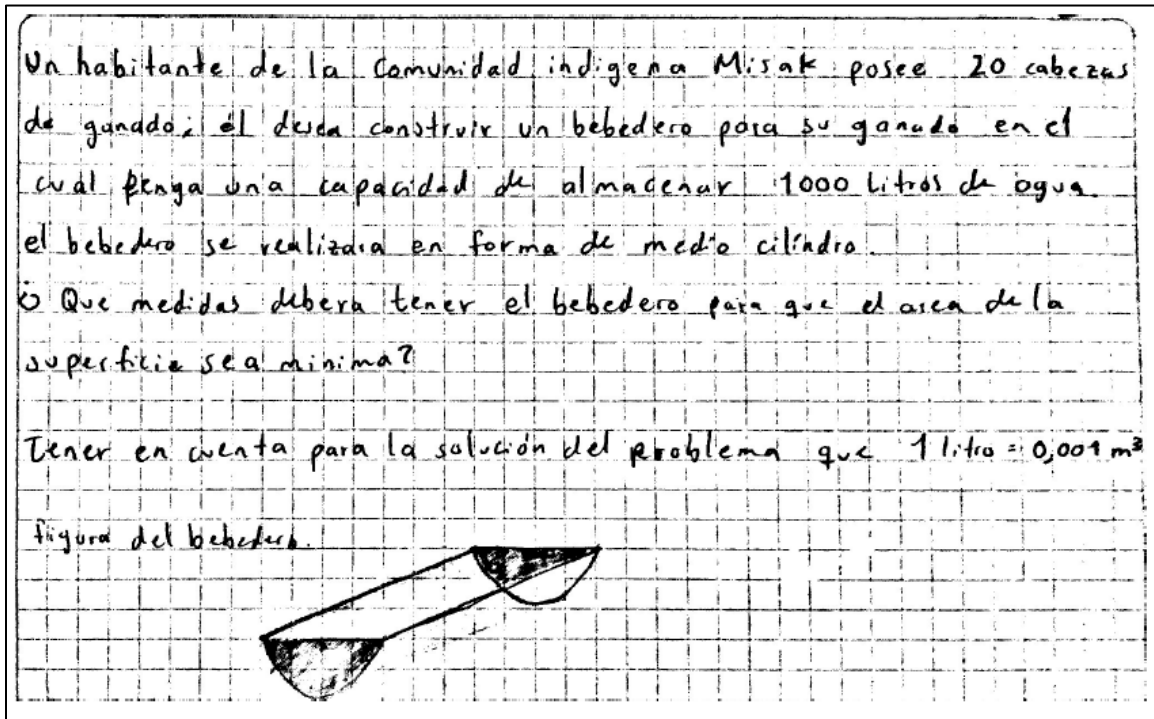 Un habitante de la comunidad indigena Misak posee 20 cabezas
de ganado; él desea construir un bebedero para su ganado en el
cual tenga una capacidad de almacenar 1000 Litros de agua.
el bebedero se realizara en forma de medio cilíndro.
¿ Que medidas debera tener el bebedero para que el area de la
superficie sea minima?
Tener en cuenta para la solución del problema que 1 litro = 0,001 m³
figura del bebedero.